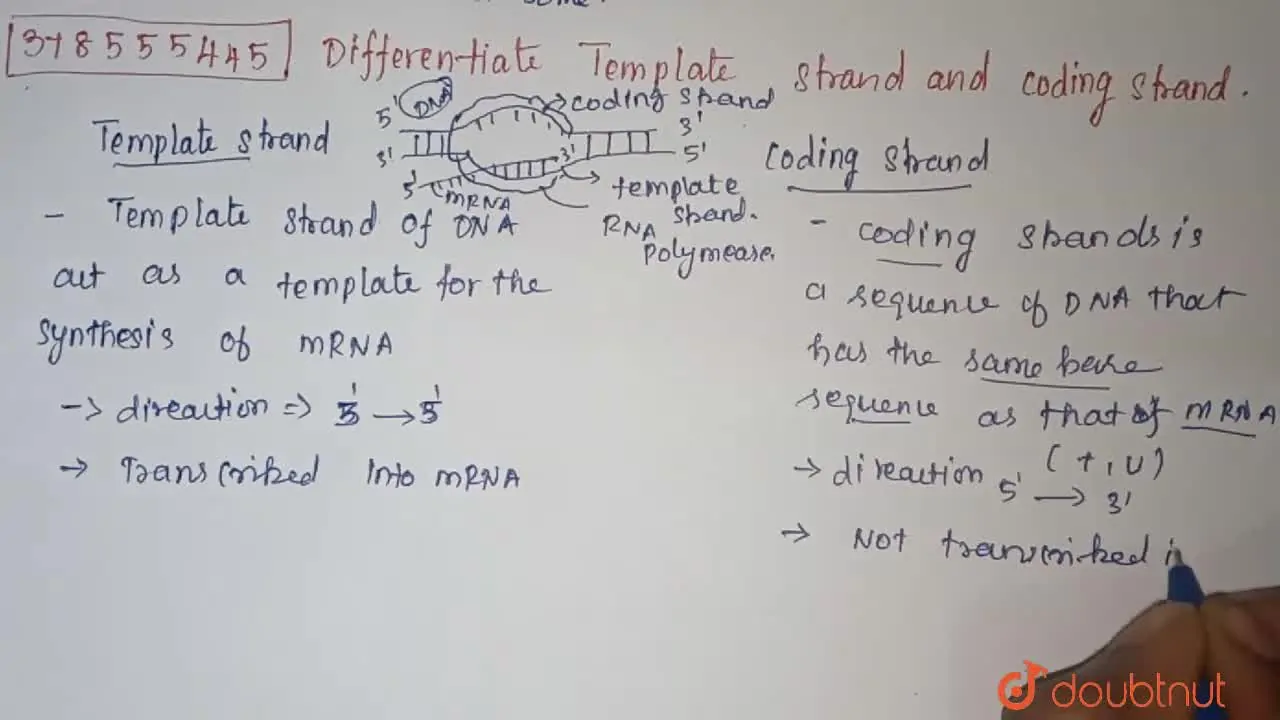 378555445 Differentiate Template strand and coding strand.
5' DNA coding strand
3'
Template strand
3' 3' 5'
coding strand
5' mRNA template strand.
RNA polymease
- Template strand of DNA
aut as a template for the
synthesis of mRNA
-> direaction => 3' -> 5'
-> Transcribed Into mRNA
- coding strands is
a sequence of DNA that
has the same base
sequence as that of mRNA
(T, U)
-> direaction 5' -> 3'
-> Not transcribed i
doubtnut